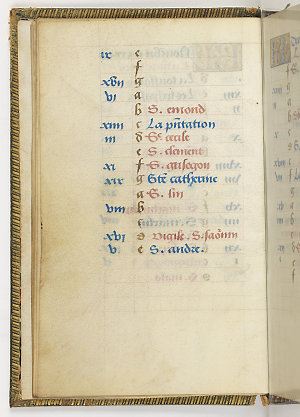 ix e
f
xvii g
vi a
b S. emond
xiiii c La pñtation
iii d Se cecile
e S. clement
xi f S. grisegon
xix g Ste catherine
a S. lin
viii b
c
xvi d Vigile. S. saõnin
v e S. andre.